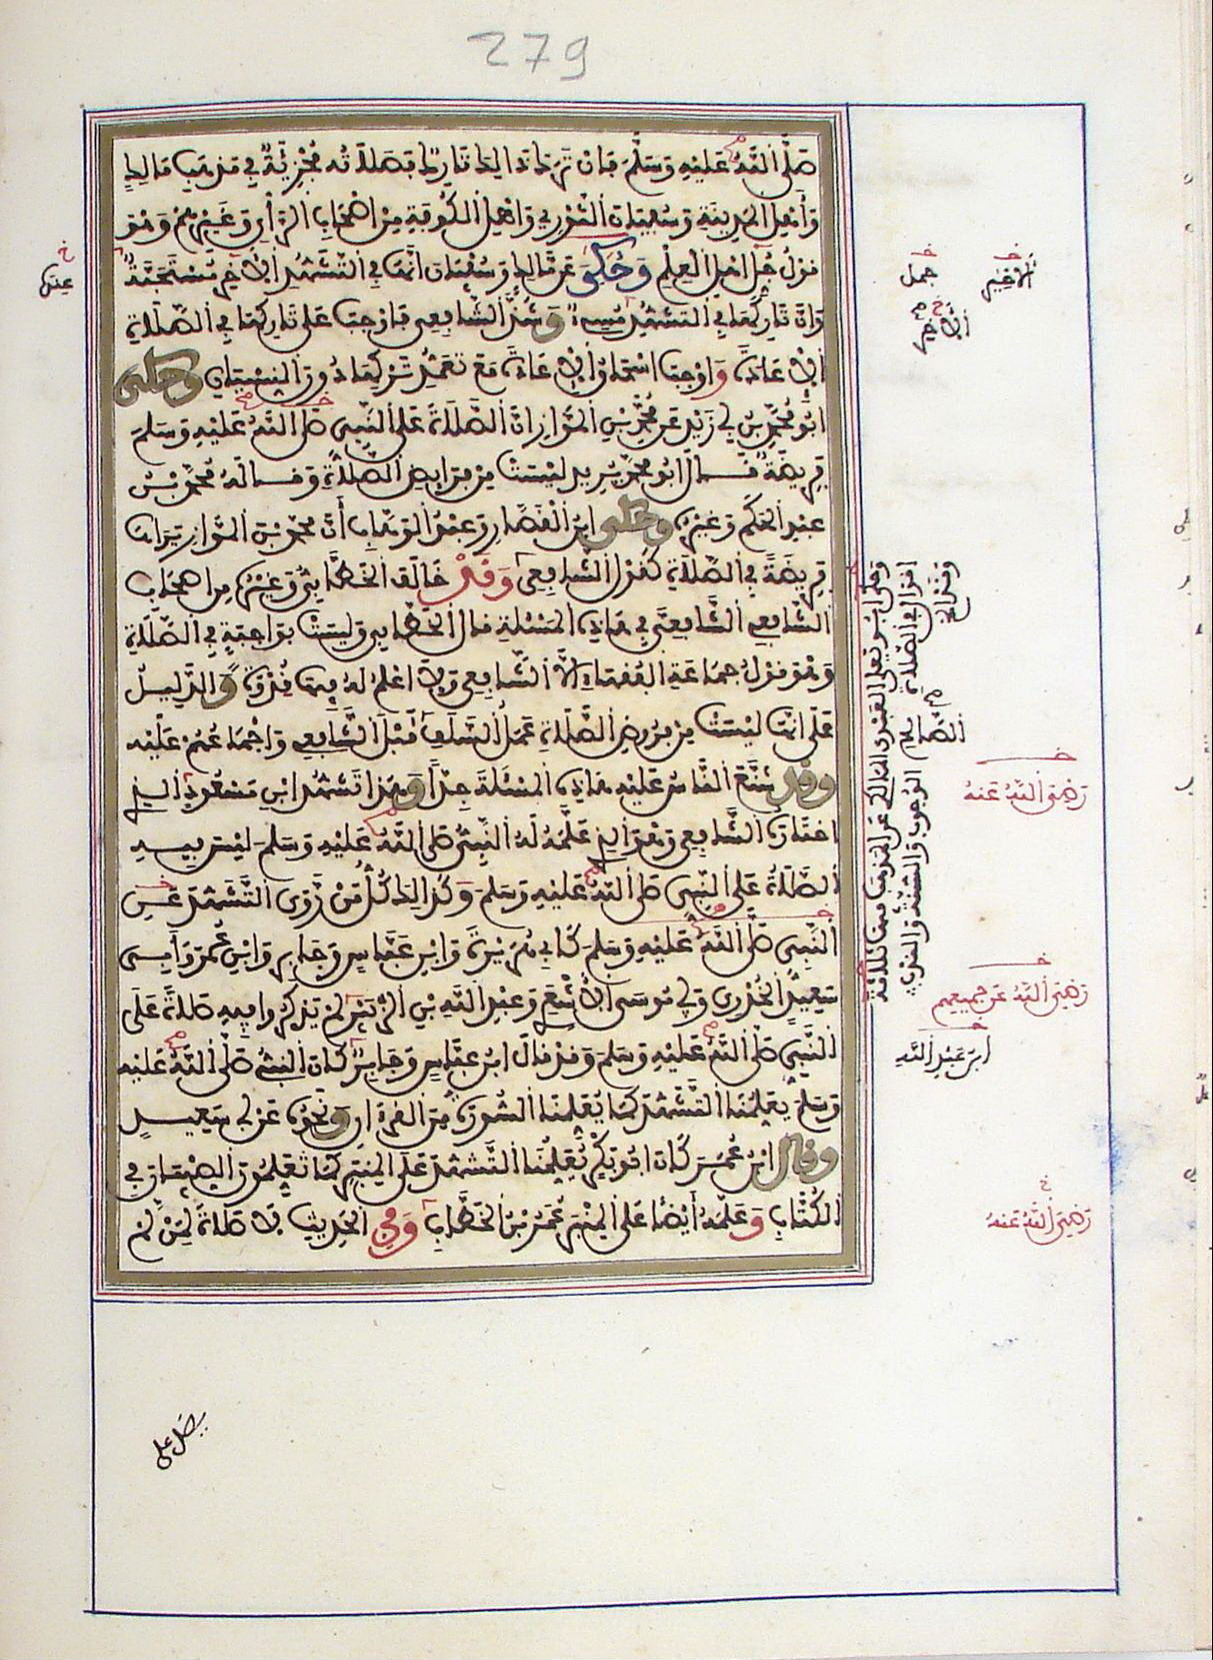 279
صَلَّى اللَّهُ عَلَيْهِ وَسَلَّمَ فَإِنْ تَرَكَ ذَالِكَ تَارِكٌ فَصَلَاتُهُ مُجْزِئَةٌ فِي مَذْهَبِ مَالِكٍ
وَأَهْلِ الْمَدِينَةِ وَسُفْيَانَ الثَّوْرِيِّ وَأَهْلِ الْكُوفَةِ مِنْ أَصْحَابِ الرَّأْيِ وَغَيْرِهِمْ وَهْوَ
قَوْلُ جُلِّ أَهْلِ الْعِلْمِ وَحُكِيَ عَنْ مَالِكٍ وَسُفْيَانَ أَنَّهَا فِي التَّشَهُّدِ الْأَخِيرِ مُسْتَحَبَّةٌ
وَأَنَّ تَارِكَهَا فِي التَّشَهُّدِ مُسِيءٌ وَشَذَّ الشَّافِعِي فَأَوْجَبَ عَلَى تَارِكِهَا فِي الصَّلَاةِ
الْإِعَادَةَ وَأَوْجَبَ إِسْحَاقُ الْإِعَادَةَ مَعَ تَعَمُّدِ تَرْكِهَا دُونَ النِّسْيَانِ وَحَكَى
أَبُو مُحَمَّدِ بْنُ أَبِي زَيْدٍ عَنْ مُحَمَّدِ بْنِ الْمَوَّازِ أَنَّ الصَّلَاةَ عَلَى النَّبِيِّ صَلَّى اللَّهُ عَلَيْهِ وَسَلَّمَ
فَرِيضَةٌ قَالَ أَبُو مُحَمَّدٍ يُرِيدُ لَيْسَتْ مِنْ فَرَائِضِ الصَّلَاةِ وَقَالَهُ مُحَمَّدُ بْنُ
عَبْدِ الْحَكَمِ وَغَيْرُهُ وَحَكَى ابْنُ الْقَصَّارِ وَعَبْدُ الْوَهَّابِ أَنَّ مُحَمَّدَ بْنَ الْمَوَّازِ يَرَاهَا
فَرِيضَةً فِي الصَّلَاةِ كَقَوْلِ الشَّافِعِي وَقَدْ خَالَفَ الْخَطَّابِيُّ وَغَيْرُهُ مِنْ أَصْحَابِ
الشَّافِعِي الشَّافِعِيَّ فِي هَاذِهِ الْمَسْأَلَةِ قَالَ الْخَطَّابِي وَلَيْسَتْ بِوَاجِبَةٍ فِي الصَّلَاةِ
وَهْوَ قَوْلُ جَمَاعَةِ الْفُقَهَاءِ إِلَّا الشَّافِعِي وَلَا أَعْلَمُ لَهُ فِيهَا قُدْوَةً وَالدَّلِيلُ
عَلَى أَنَّهَا لَيْسَتْ مِنْ فُرُوضِ الصَّلَاةِ عَمَلُ السَّلَفِ قَبْلَ الشَّافِعِي وَإِجْمَاعُهُمْ عَلَيْهِ
وَقَدْ شَنَّعَ النَّاسُ عَلَيْهِ هَاذِهِ الْمَسْئَلَةَ جِدًّا وَهَذَا تَشَهُّدُ ابْنِ مَسْعُودٍ الَّذِي
اخْتَارَهُ الشَّافِعِي وَهْوَ الَّذِي عَلَّمَهُ لَهُ النَّبِيُّ صَلَّى اللَّهُ عَلَيْهِ وَسَلَّمَ لَيْسَ فِيهِ
الصَّلَاةُ عَلَى النَّبِيِّ صَلَّى اللَّهُ عَلَيْهِ وَسَلَّمَ وَكَذَالِكَ كُلُّ مَنْ رَوَى التَّشَهُّدَ عَنِ
النَّبِيِّ صَلَّى اللَّهُ عَلَيْهِ وَسَلَّمَ كَأَبِي هُرَيْرَةَ وَابْنِ عَبَّاسٍ وَجَابِرٍ وَابْنِ عُمَرَ وَأَبِي
سَعِيدٍ الْخُدْرِي وَأَبِي مُوسَى الْأَشْعَرِي وَعَبْدِ اللَّهِ بْنِ الزُّبَيْرِ لَمْ يَذْكُرُوا فِيهِ صَلَاةً عَلَى
النَّبِيِّ صَلَّى اللَّهُ عَلَيْهِ وَسَلَّمَ وَقَدْ قَالَ ابْنُ عَبَّاسٍ وَجَابِرٌ كَانَ النَّبِيُّ صَلَّى اللَّهُ عَلَيْهِ
وَسَلَّمَ يُعَلِّمُنَا التَّشَهُّدَ كَمَا يُعَلِّمُنَا السُّورَةَ مِنَ الْقُرْءَانِ وَنَحْوُهُ عَنْ أَبِي سَعِيدٍ
وَقَالَ ابْنُ عُمَرَ كَانَ أَبُو بَكْرٍ يُعَلِّمُنَا التَّشَهُّدَ عَلَى الْمِنْبَرِ كَمَا تُعَلِّمُونَ الصِّبْيَانَ فِي
الْكُتَّابِ وَعَلَّمَهُ أَيْضًا عَلَى الْمِنْبَرِ عُمَرُ بْنُ الْخَطَّابِ وَفِي الْحَدِيثِ لَا صَلَاةَ لِمَنْ لَمْ
عِدَّتُهَا
جمل
الْأَخِير
وَحَكَى أَبُو يَعْلَى الْعَبْدِي الْمَالِكِي عَنِ الْمَذْهَبِ فِيهَا ثَلَاثَةَ
أَقْوَالٍ فِي الصَّلَاةِ الْوُجُوبَ وَالسُّنَّةَ وَالنَّدْبَ
رَضِيَ اللَّهُ عَنْهُ
رَضِيَ اللَّهُ عَنْ جَمِيعِهِمْ
ابْنُ عَبْدِ اللَّهِ
رَضِيَ اللَّهُ عَنْهُ
يصل على